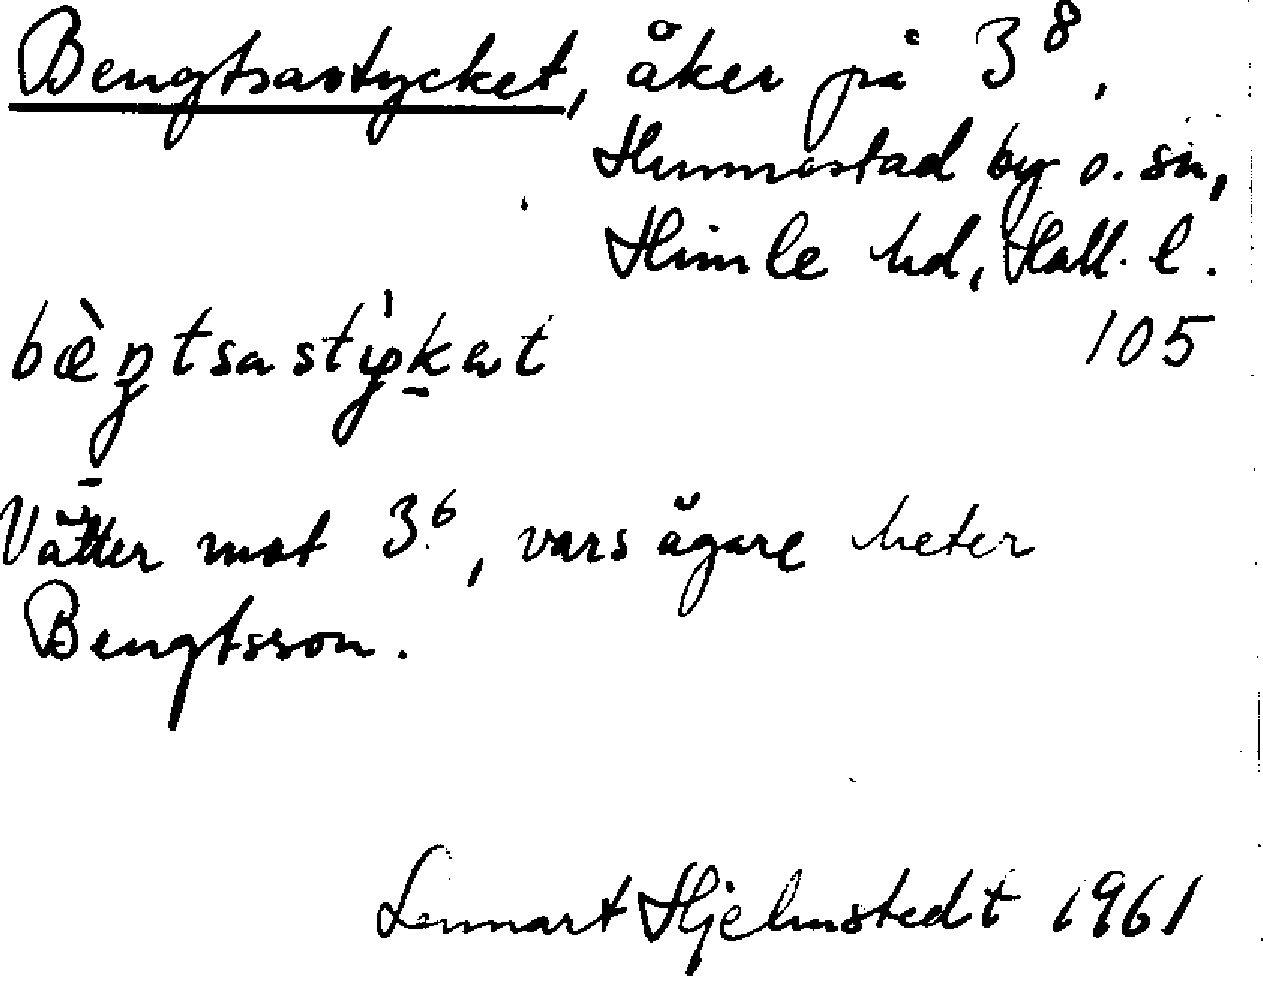 Bengtsastycket, åker på 3⁸,
Hunnestad by o. sn,
Himle hd, Hall. l.
105
Vätter mot 3⁶, vars ägare heter
Bengtsson.
Lennart Hjelmstedt 1961